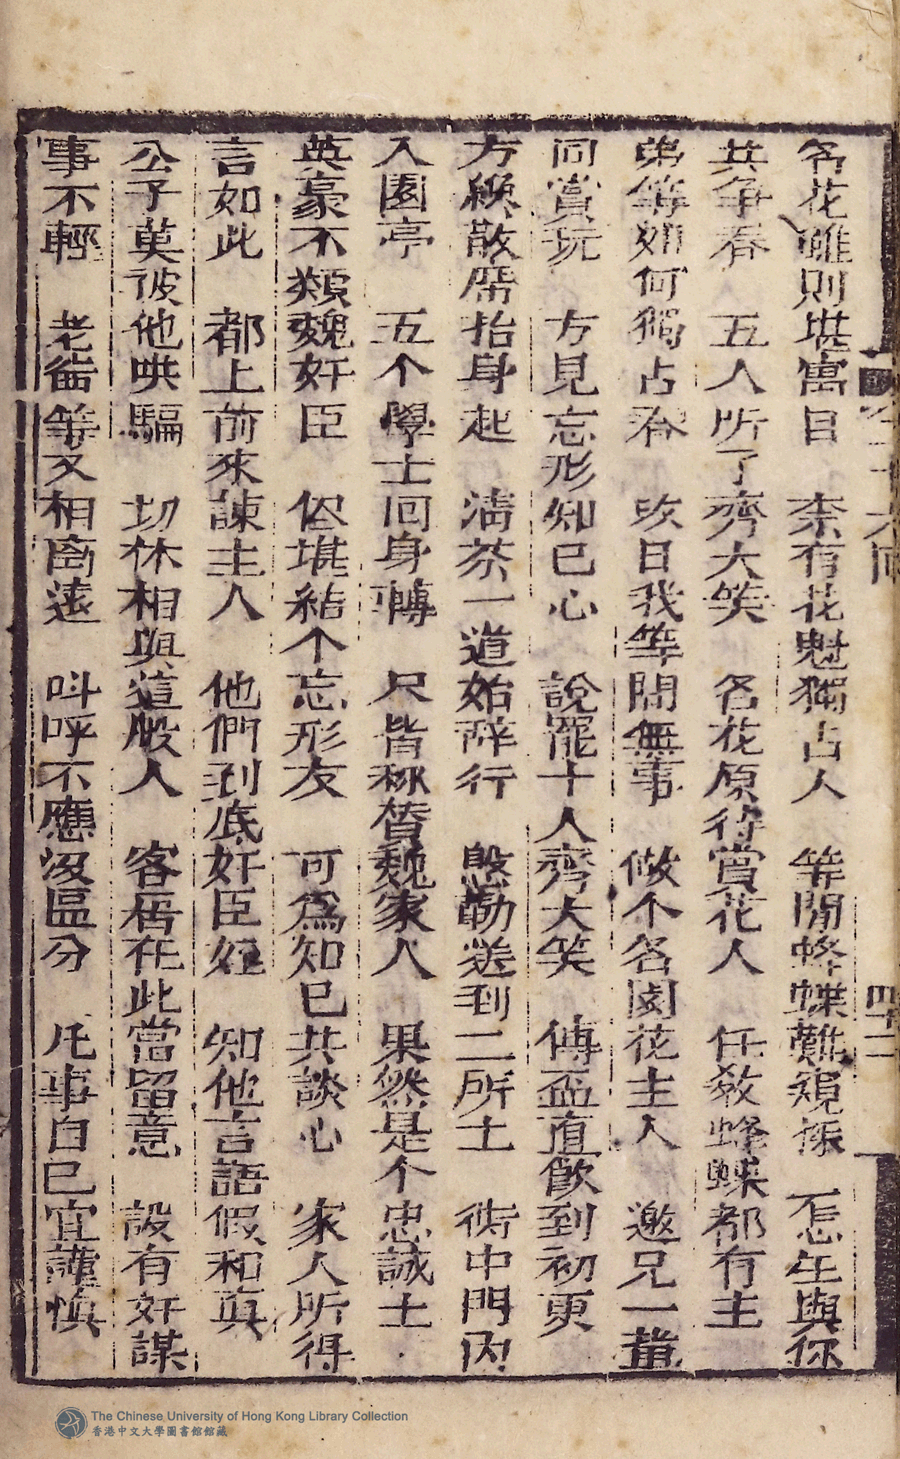 名花雖則堪寓目 柰有花魁獨占人 等閒蜂蝶難窺採 怎生與你
共爭春 五人听了齊大笑 名花原待賞花人 任教蜂蝶都有主
弟等如何獨占春 改日我等閒無事 做个名園花主人 邀兄一輩
同賞玩 方見忘形知已心 說罷十人齊大笑 傳盃直飲到初更
方纔散席抬身起 清茶一道始辞行 慇懃送到二所土 街中門內
入園亭 五个學士回身轉 只皆称賛魏家人 果然是个忠誠士
英豪不類魏奸臣 但堪結个忘形友 可為知已共談心 家人所得
言如此 都上前來諫主人 他們到底奸臣姪 知他言語假和真
公子莫彼他哄騙 切休相與這般人 客居在此當留意 設有奸謀
事不輕 老爺等又相离遠 叫呼不應没區分 凡事自已宜謹慎
四十二
The Chinese University of Hong Kong Library Collection
香港中文大學圖書館館藏